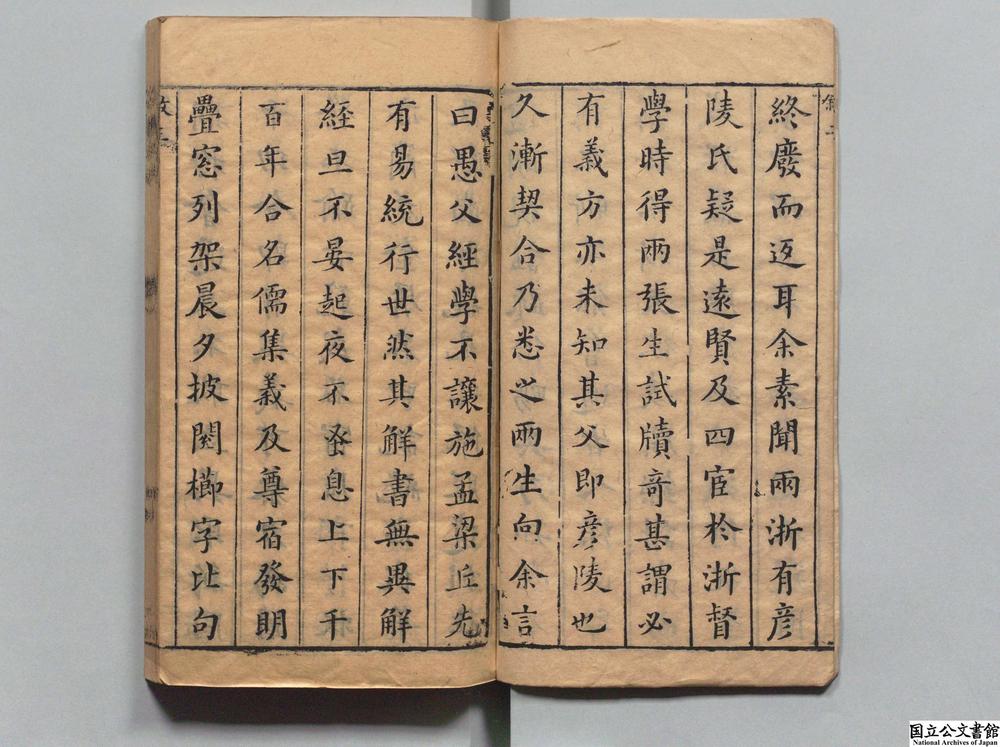 終廢而返耳余素聞兩浙有彦
陵氏疑是遠賢及四宦於浙督
學時得兩張生試牘奇甚謂必
有義方亦未知其父即彦陵也
久漸契合乃悉之兩生向余言
曰愚父經學不讓施孟梁丘先
有易統行世然其解書無異解
經旦不晏起夜不蚤息上下千
百年合名儒集義及尊宿發明
疊窓列架晨夕披閱櫛字比句
国立公文書館
National Archives of Japan